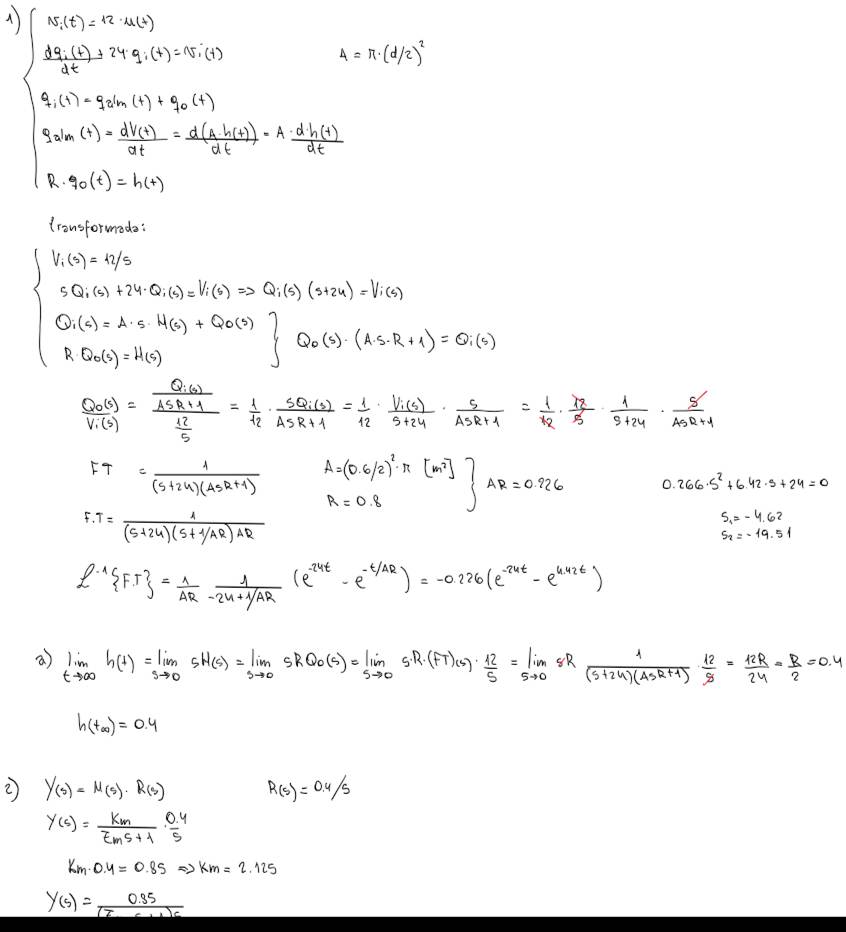 1) v_i(t) = 12·u(t)
dq_i(t)/dt + 24·q_i(t) = v_i(t)    A = π·(d/2)²
q_i(t) = q_alm(t) + q_o(t)
q_alm(t) = dV(t)/dt = d(A·h(t))/dt = A·d·h(t)/dt
R·q_o(t) = h(t)
transformada:
V_i(s) = 12/s
sQ_i(s) + 24·Q_i(s) = V_i(s) => Q_i(s)(s+24) = V_i(s)
Q_i(s) = A·s·H(s) + Q_o(s)
R·Q_o(s) = H(s)    } Q_o(s)·(A·s·R+1) = Q_i(s)
Q_o(s)/V_i(s) = (Q_i(s)/(ASR+1))/(12/s) = 1/12 · sQ_i(s)/(ASR+1) = 1/12 · V_i(s)/(s+24) · s/(ASR+1) = 1/12 · 12/s · 1/(s+24) · s/(ASR+1)
FT = 1/((s+24)(ASR+1))    A = (0.6/2)²·π [m²]
R = 0.8    } AR = 0.226    0.266·s² + 6.42·s + 24 = 0
F.T = 1/((s+24)(s+1/AR)AR)    s₁ = -4.62
s₂ = -19.51
ℒ⁻¹{F.T} = 1/AR · 1/(-24+1/AR) (e^(-24t) - e^(-t/AR)) = -0.226(e^(-24t) - e^(4.42t))
a) lim t→∞ h(t) = lim s→0 sH(s) = lim s→0 sRQ_o(s) = lim s→0 s·R·(FT)(s)·12/s = lim s→0 sR 1/((s+24)(ASR+1)) · 12/s = 12R/24 = R/2 = 0.4
h(t∞) = 0.4
2) Y(s) = M(s)·R(s)    R(s) = 0.4/s
Y(s) = Km/(τm s+1) · 0.4/s
Km·0.4 = 0.85 => Km = 2.125
Y(s) = 0.85